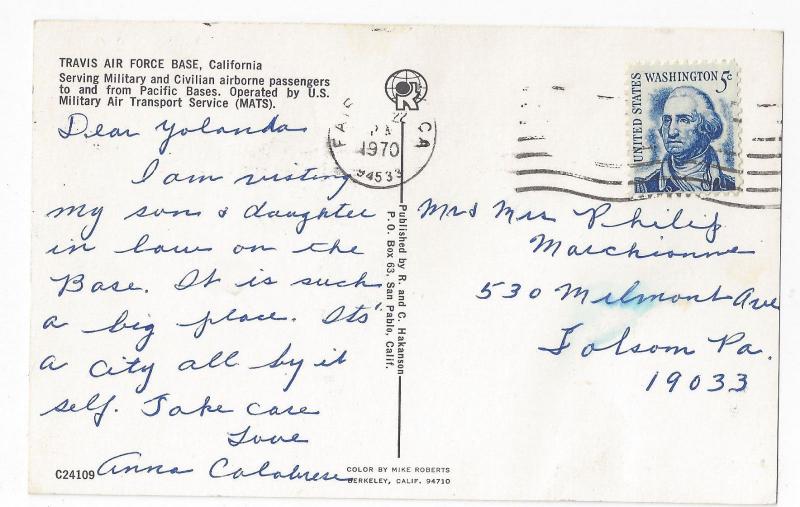 TRAVIS AIR FORCE BASE, California
Serving Military and Civilian airborne passengers
to and from Pacific Bases. Operated by U.S.
Military Air Transport Service (MATS).
Dear Yolanda
I am visiting
my son & daughter
in law on the
Base. It is such
a big place. Its'
a city all by it
self. Take care
Love
Anna Calabrese
C24109
CA
22
1970
94533
Published by R. and C. Hakanson
P. O. Box 63, San Pablo, Calif.
COLOR BY MIKE ROBERTS
BERKELEY, CALIF. 94710
UNITED STATES
WASHINGTON 5c
Mr & Mrs Philip
Marchionne
530 Milmont Ave
Folsom Pa.
19033